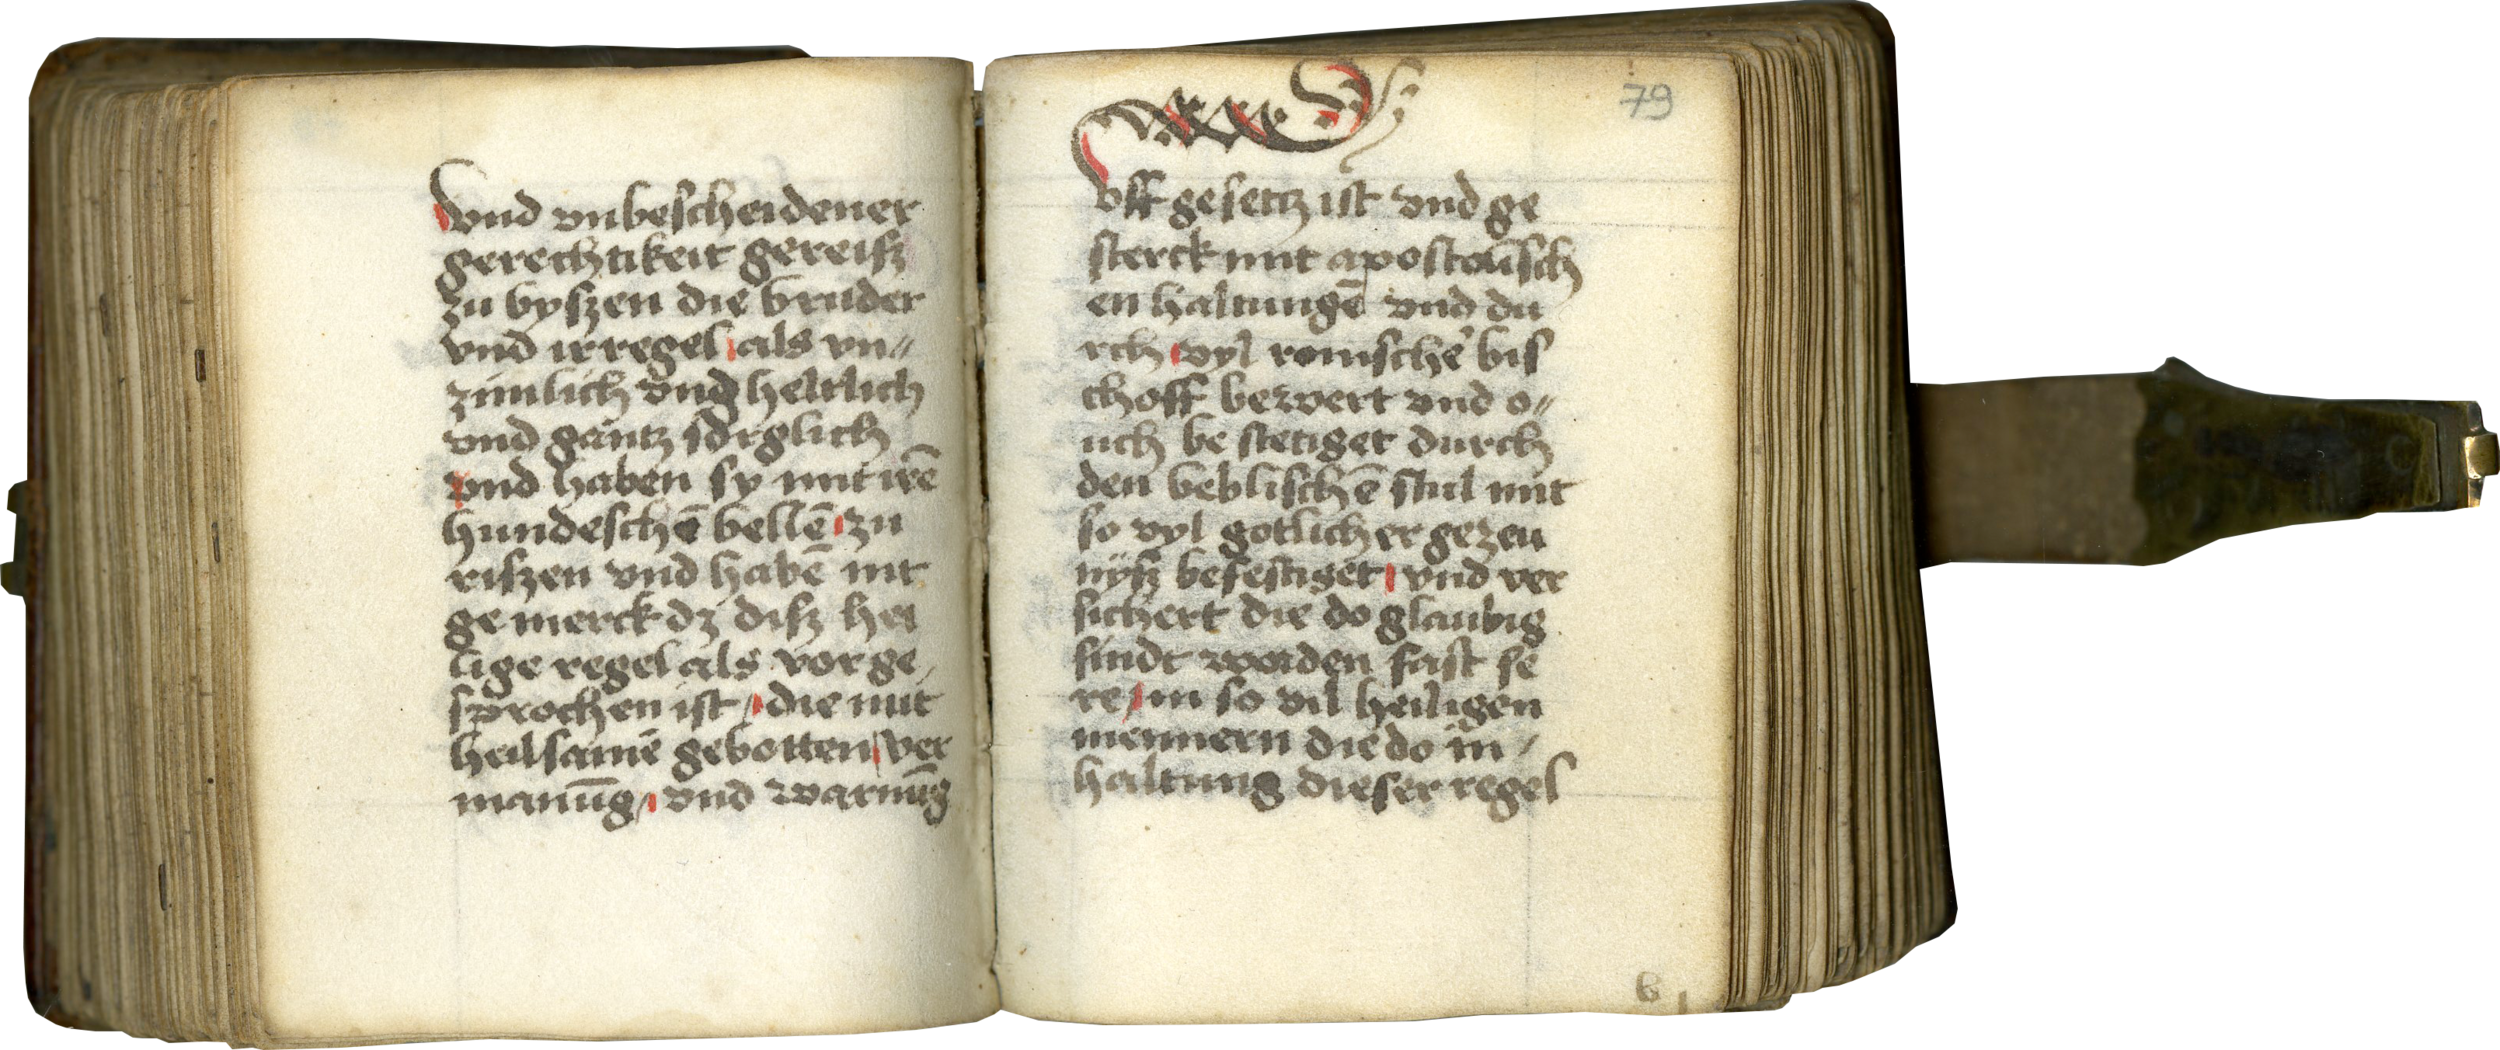 vnd vnbescheidener
gerechtikeit gereisz
zu byszen die bruder
vnd ir regel als vn„
zimlich vnd heltlich
vnd gantz sorglich
vnd haben sy mit irē
hundeschē bellē zu
riszen vnd habē nit
ge merck dz disz hei
lige regel als vor ge
sprochen ist / die mit
heilsamē gebotten ver
manūg / vnd warnūg
79
vff gesetz ist vnd ge
sterck mit apostolisch
en haltungē vnd du
rch vyl romischer bis
choff bewert vnd o„
uch be stetiget durch
den beblischē stul mit
so vyl gotlicher gezeu
nysz befestiget vnd ver
sichert die do glaubig
sindt worden fast se
re / in so vil heiligen
mennern die do in /
haltung dieser regel